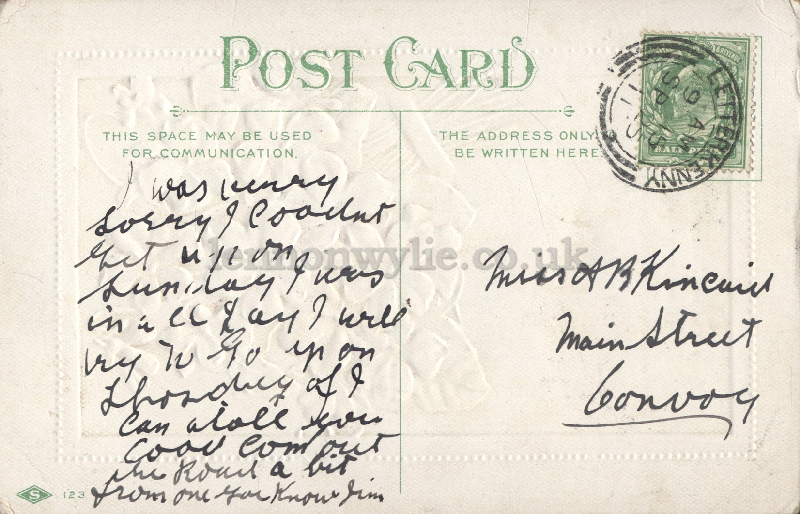 POST CARD
THIS SPACE MAY BE USED
FOR COMMUNICATION.
THE ADDRESS ONLY
BE WRITTEN HERE.
LETTERKENNY
9 AM
SP 5
11
I was verry
sorry I Coodnt
Get up on
Sunday I was
in all day I will
try to Go up on
if I
Can atall you
Cood Com out
the Road a bit
from one you Know Jim
Miss A B Kincaid
Main Street
Convoy
lennonwylie.co.uk
S 123